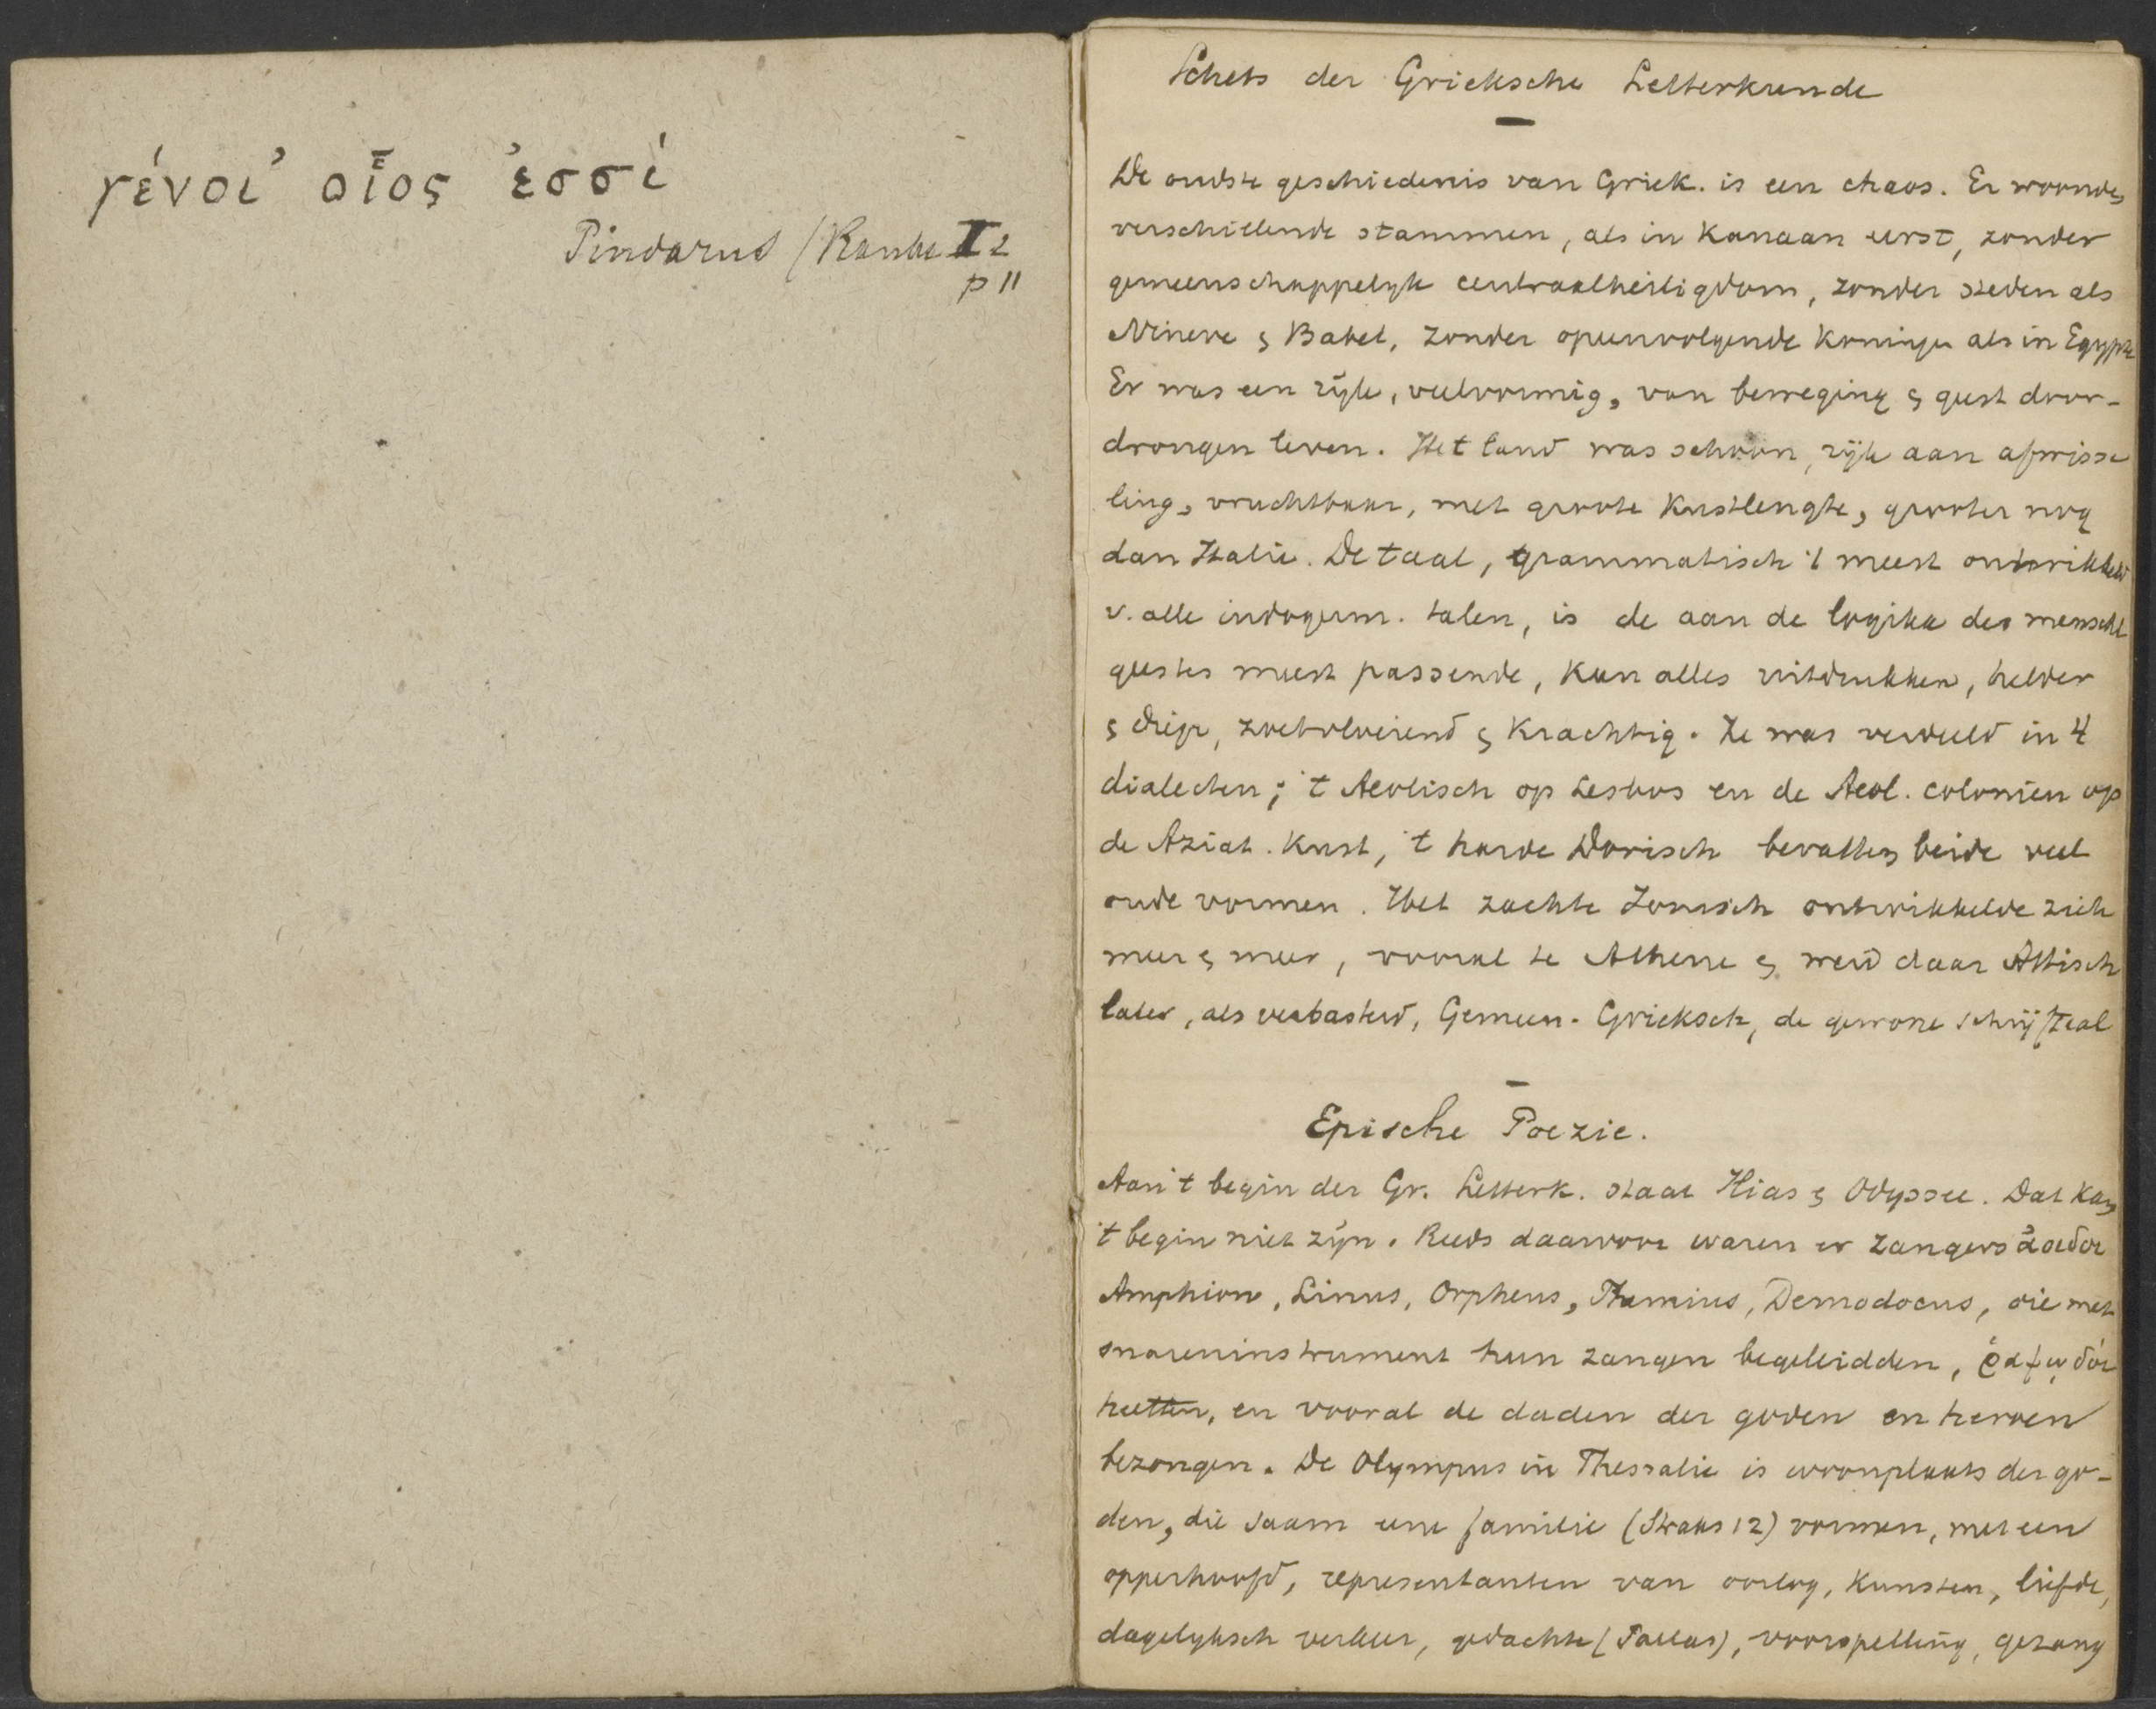 γένοι' οἷος ἐσσί
Pindarus (Ranke I 2
p 11
Schets der Grieksche Letterkunde
De oudste geschiedenis van Griek. is een chaos. Er woonden
verschillende stammen, als in Kanaan eerst, zonder
gemeenschappelyk centraalheiligdom, zonder steden als
Nineve & Babel, zonder opeenvolgende Koningen als in Egypte
Er was een ryk, veelvormig, van beweging & geest door-
drongen leven. Het land was schoon, rijk aan afwisse
ling, vruchtbaar, met groote Kustlengte, grooter nog
dan Italie. De taal, grammatisch 't meest ontwikkeld
v. alle indogerm. talen, is de aan de logika des menschl
geestes meest passende, Kan alles uitdrukken, helder
& diep, zoetvloeiend & Krachtig. Ze was verdeeld in 4
dialecten; 't Aeolisch op Lesbos en de Aeol. colonien op
de Aziat. Kust, 't harde Dorisch bevatten beide veel
oude vormen. Het zachte Ionisch ontwikkelde zich
meer & meer, vooral te Athene & werd daar Attisch
later, als verbasterd, Gemeen-Grieksch, de gewone schrijftaal
Epische Poezie.
Aan 't begin der Gr. Letterk. staat Ilias & Odyssee. Dat Kan
't begin niet zyn. Reeds daarvoor waren er zangers ἀοιδοι
Amphion, Linus, Orpheus, Phemius, Demodocus, die met
snareninstrument hun zangen begeleidden, ῥαψῳδοί
heetten, en vooral de daden der goden en heroen
bezongen. De Olympus in Thessalie is woonplaats der go-
den, die saam eene familie (Straks 12) vormen, met een
opperhoofd, representanten van oorlog, Kunsten, liefde,
dagelyksch verkeer, gedachte (Pallas), voorspelling, gezang